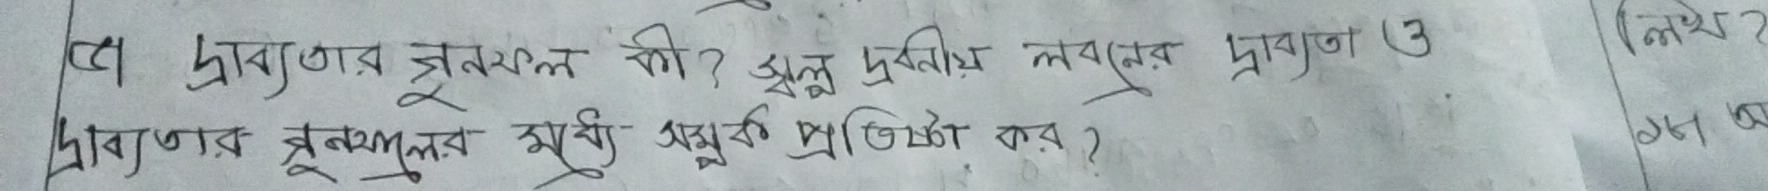 ৫। দ্রাব্যতার গুনফল কী? স্বল্প দ্রবনীয় লবনের দ্রাব্যতা ও
দ্রাব্যতার গুনফলের মধ্যে সম্পর্ক প্রতিষ্ঠা কর?
লিখ?